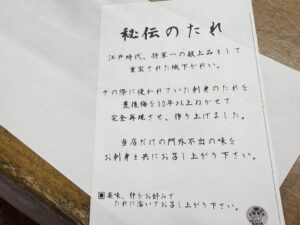 秘伝のたれ
江戸時代、将軍への献上品として
重宝された城下かれい。
その際に使われていた刺身のたれを
豊後梅を10年以上ねかせて
完全再現させ、作り上げました。
当店だけの門外不出の味を
お刺身と共にお召し上がり下さい。
薬味、肝をお好みで
たれに溶いてお召し上がり下さい。